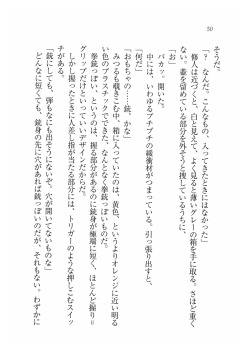 50
そうだ。
「？　なんだ、こんなもの、入ってきたときにはなかった」
　修人は近づくと、白と見えて、よく見ると薄いグレーの箱を手に取る。さほど重く
ない。蓋を留めている部分を外そうと捜しているうちに、
「お」
　パカッ。開いた。
「何だ」
　中には、いわゆるプチプチの緩衝材がつまっている。引っ張り出すと、
「おもちゃの……銃、かな」
　みつるも覗きこむ中、箱に入っていたのは、黄色、というよりオレンジに近い明る
い色のプラスチックでできた、なんとなく拳銃っぽいものだ。
　拳銃っぽい、というのは、握る部分があるのに銃身が極端に短く、ほとんど握り＝
グリップだけといっていいデザインだからだ。
　しかし握ったときに人差し指が当たる部分には、トリガーのような押しこむスイッ
チがある。
「銃にしても、弾もなにも出そうにないぞ。穴が開いてないもの」
　どんなに短くても、銃身の先に穴があれば銃っぽいのだが、それもない。わずかに